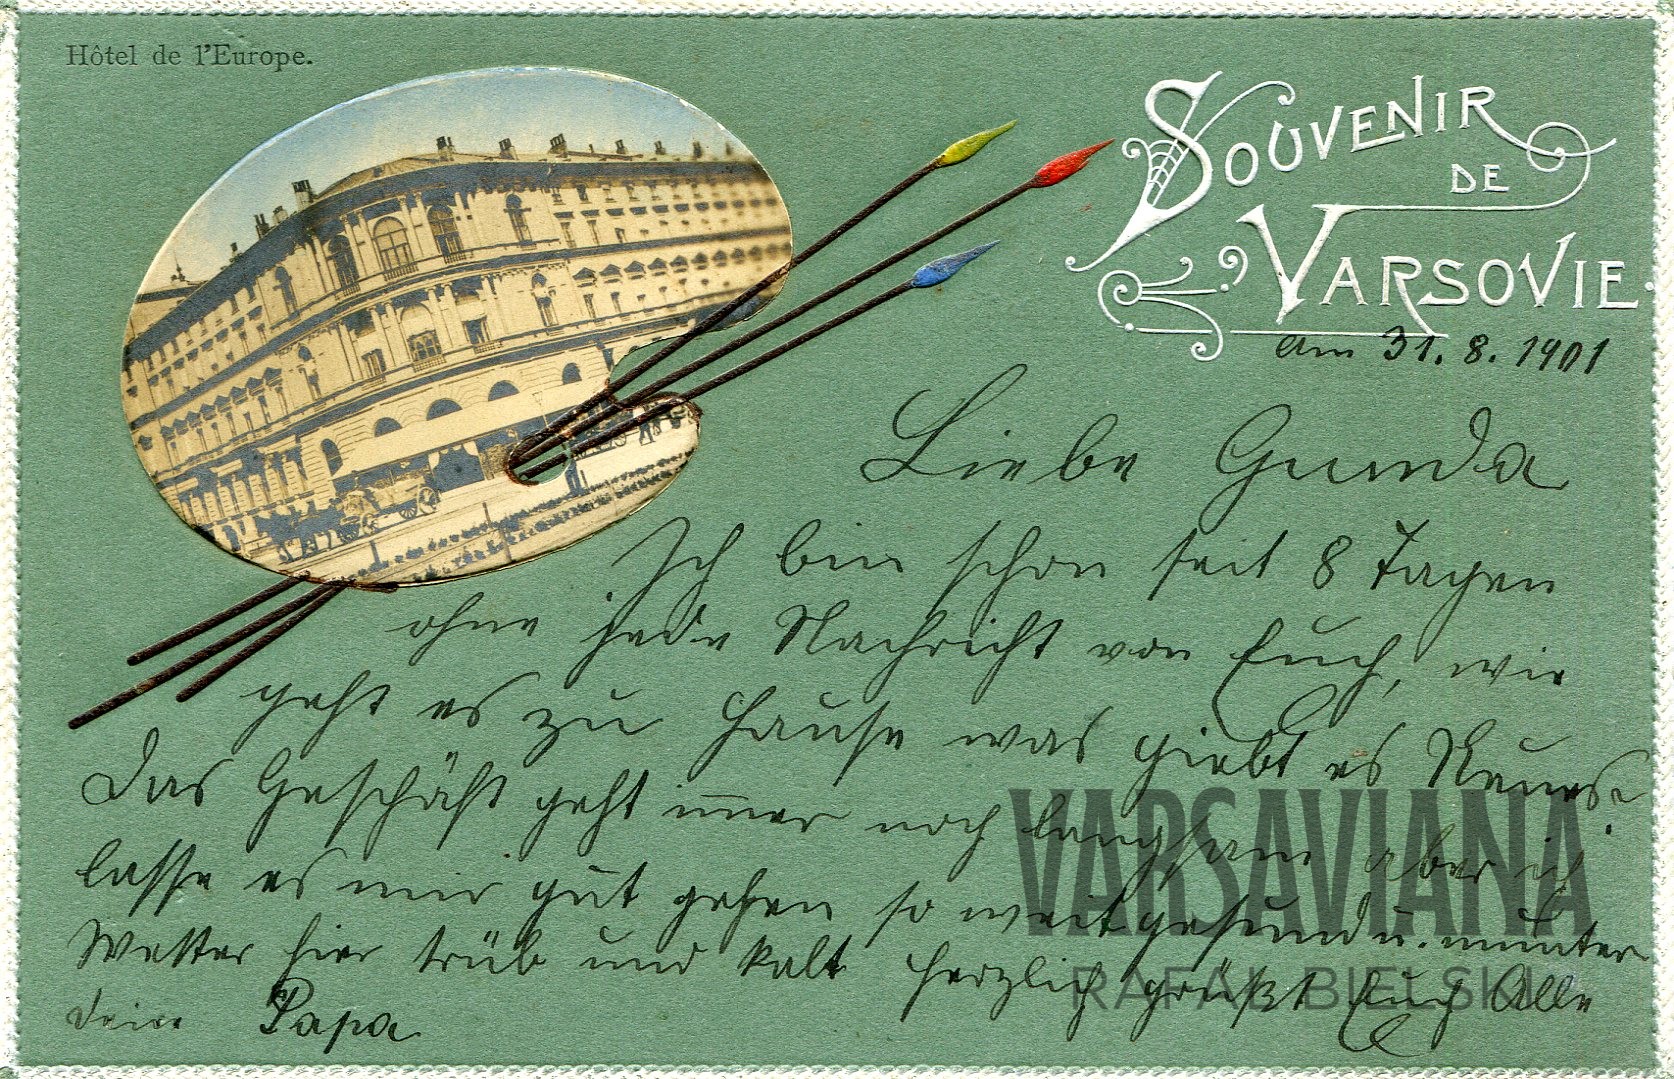 Hôtel de l'Europe.
SOUVENIR
DE
VARSOVIE
am 31. 8. 1901
Liebe Gunda
Ich bin schon seit 8 Tagen
ohne jede Nachricht von Euch, wie
geht es zu Hause was giebt es Neues
Das Geschäft geht immer noch langsam aber ich
lasse es mir gut gehen so weit gesund u. munter
Wetter hier trüb und kalt herzlich grüßt Euch Alle
dein Papa
VARSAVIANA
RAFAŁ BIELSKI